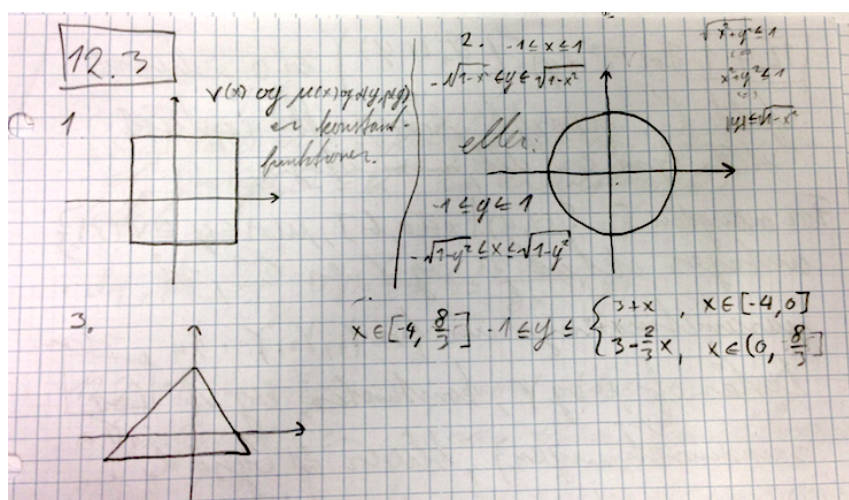 12.3
1
v(x) og μ(x) og α(y), β(y)
er konstant-
funktioner.
2. -1 ≤ x ≤ 1
-√1-x² ≤ y ≤ √1-x²
eller:
-1 ≤ y ≤ 1
-√1-y² ≤ x ≤ √1-y²
√x²+y² ≤ 1
x²+y² ≤ 1
|y| ≤ √1-x²
3.
x ∈ [-4, 8/3] -1 ≤ y ≤ { 3+x , x ∈ [-4, 0]
3-2/3x, x ∈ (0, 8/3]